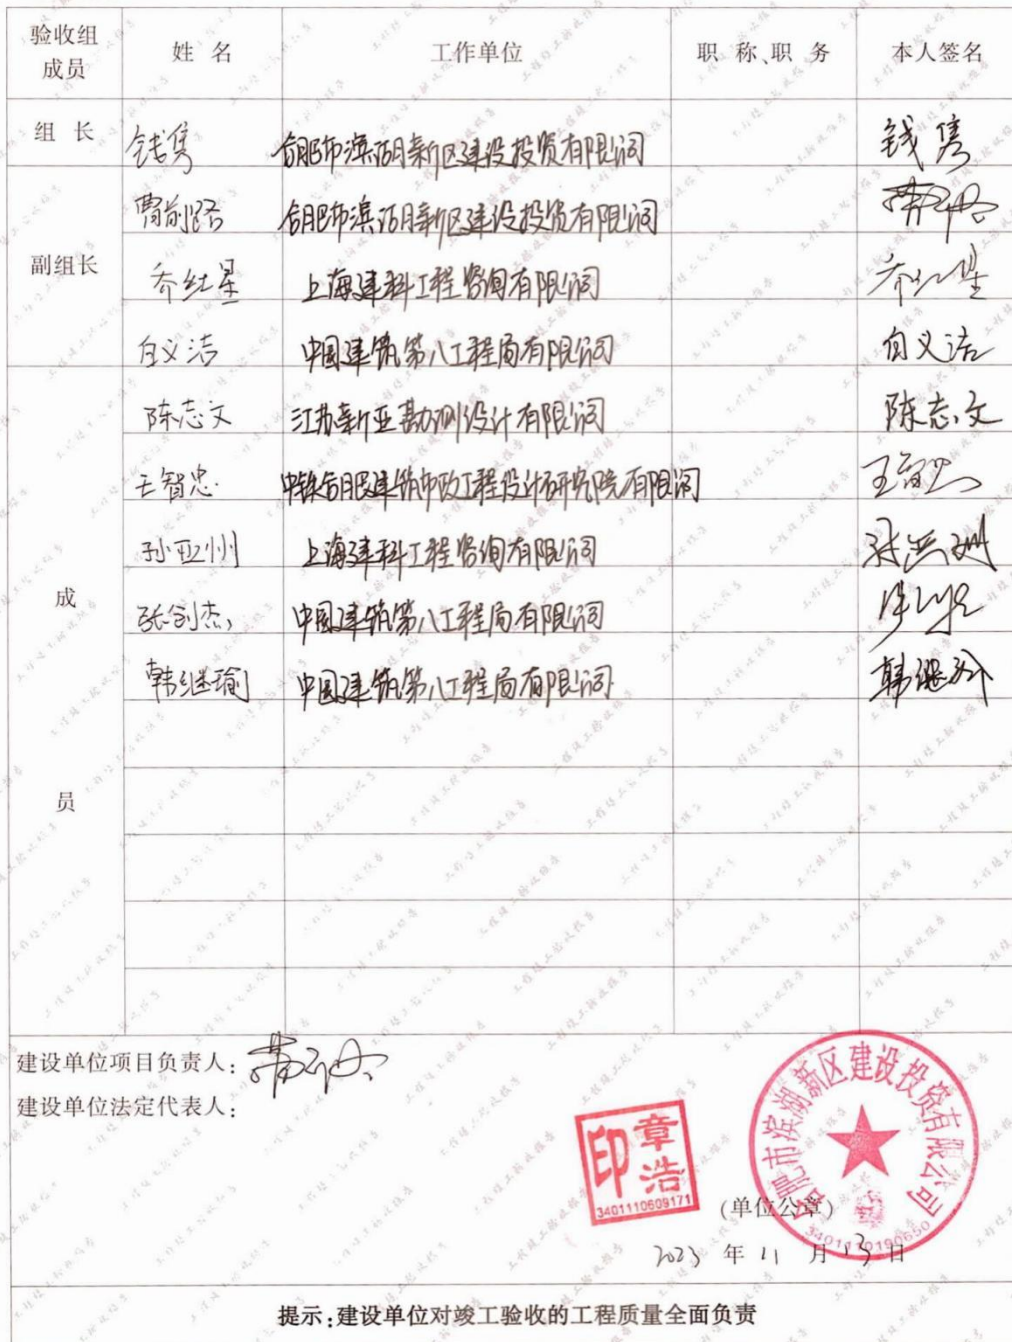 验收组成员 姓 名 工作单位 职 称、职 务 本人签名
组 长 钱隽 合肥市滨湖新区建设投资有限公司 钱隽
副组长
曹前珞 合肥市滨湖新区建设投资有限公司
乔红星 上海建科工程咨询有限公司 乔红星
白义洁 中国建筑第八工程局有限公司 白义洁
成 员
陈志文 江苏新亚勘测设计有限公司 陈志文
王智忠 中铁合肥建筑市政工程设计研究院有限公司 王智忠
孙亚州 上海建科工程咨询有限公司
张剑杰 中国建筑第八工程局有限公司
韩继瑜 中国建筑第八工程局有限公司 韩继瑜
建设单位项目负责人:
建设单位法定代表人:
章浩印
3401110609171
合肥市滨湖新区建设投资有限公司
3401110190650
(单位公章)
2023 年 11 月 13 日
提示:建设单位对竣工验收的工程质量全面负责